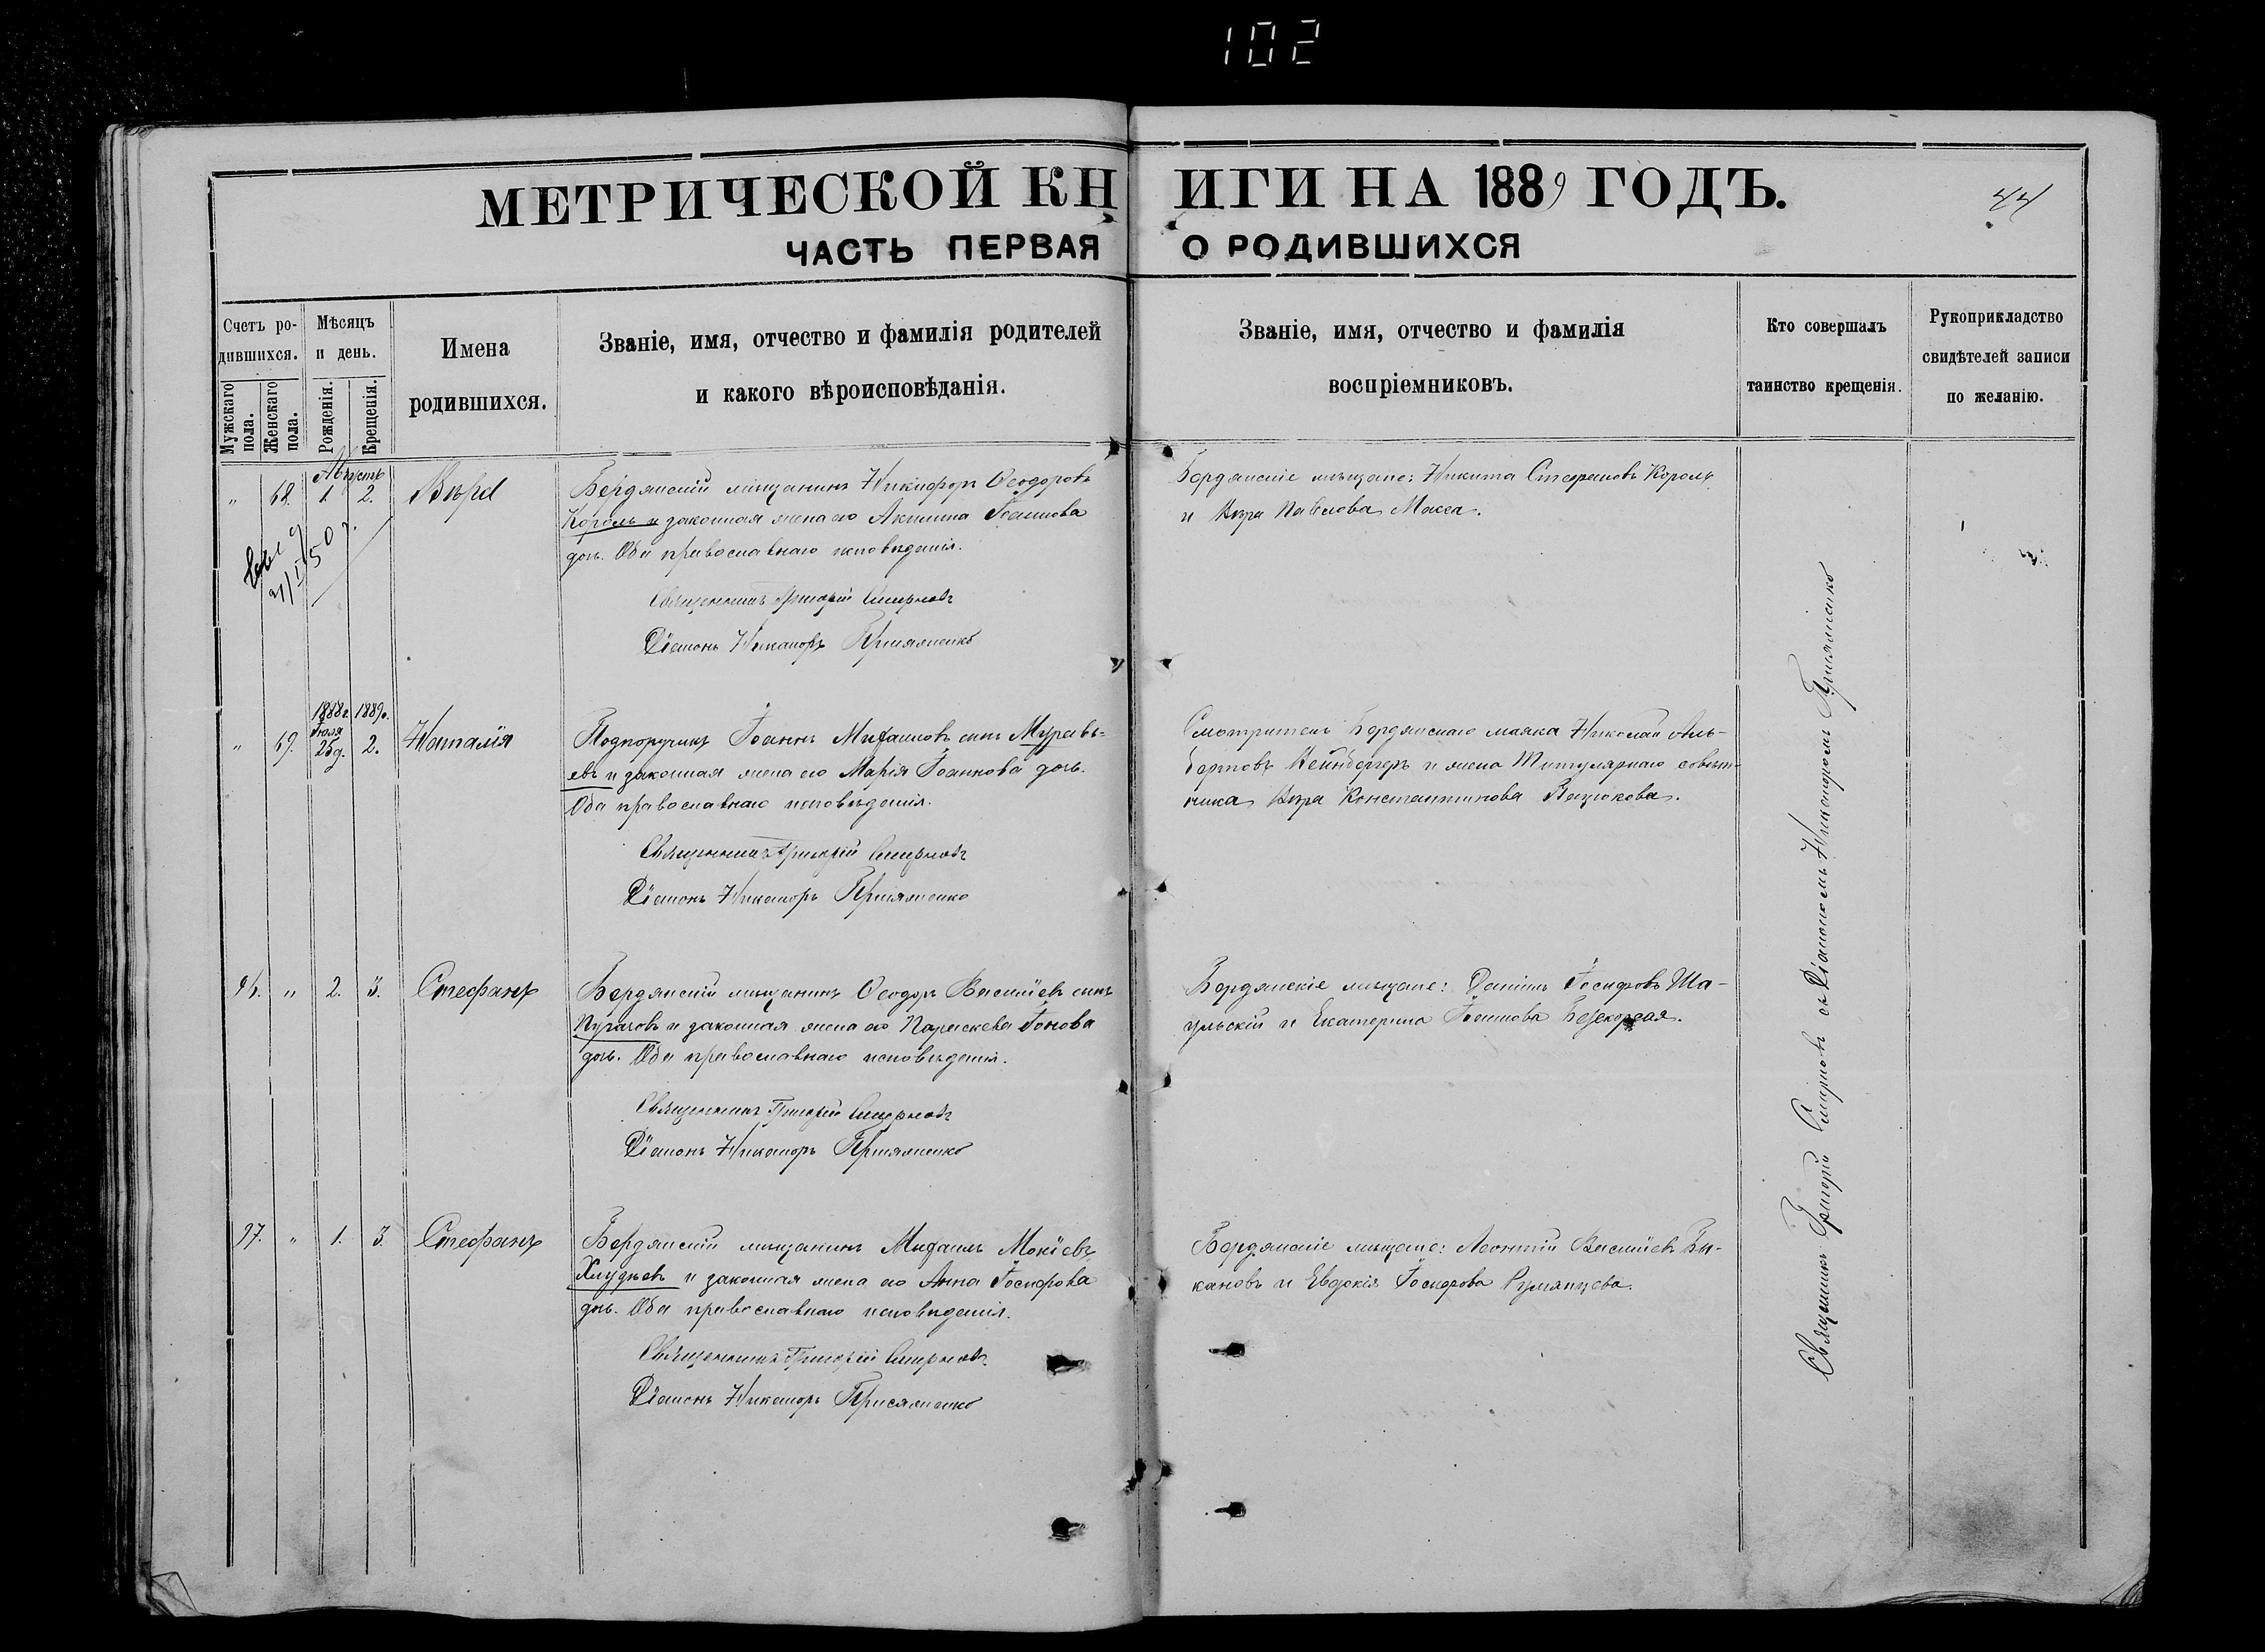 102
МЕТРИЧЕСКОЙ КНИГИ НА 1889 ГОДЪ.
44
ЧАСТЬ ПЕРВАЯ О РОДИВШИХСЯ
Счетъ родившихся.
Мужскаго пола.
Женскаго пола.
Мѣсяцъ и день.
Рожденія.
Крещенія.
Имена родившихся.
Званіе, имя, отчество и фамилія родителей
и какого вѣроисповѣданія.
Званіе, имя, отчество и фамилія
воспріемниковъ.
Кто совершалъ
таинство крещенія.
Рукоприкладство
свидѣтелей записи
по желанію.
Августъ
" 68. 1. 2. Вѣра
Бердянскій мѣщанинъ Никифоръ Ѳеодоровъ
Король и законная жена его Акилина Іоаннова
дочь. Оба православнаго исповѣданія.
Священникъ Григорій Смирновъ
Діаконъ Никаноръ Присяженко
Бердянскіе мѣщане: Никита Стефановъ Король
и Вѣра Павлова Масса.
1888г. 1889г.
Іюля
" 69. 25д. 2. Наталія
Подпоручикъ Іоаннъ Михаиловъ сынъ Муравь-
евъ и законная жена его Марія Іоаннова дочь.
Оба православнаго исповѣданія.
Священникъ Григорій Смирновъ
Діаконъ Никаноръ Присяженко
Смотритель Бердянскаго маяка Николай Аль-
бертовъ Вейнбергеръ и жена Титулярнаго совѣт-
ника Вѣра Константинова
96. " 2. 3. Стефанъ
Бердянскій мѣщанинъ Ѳеодоръ Василіевъ сынъ
Пугачовъ и законная жена его Параскева Іонова
дочь. Оба православнаго исповѣданія.
Священникъ Григорій Смирновъ
Діаконъ Никаноръ Присяженко
Бердянскіе мѣщане: Даніилъ Іосифовъ Ша-
ульскій и Екатерина Іоаннова
97. " 1. 3. Стефанъ
Бердянскій мѣщанинъ Михаилъ Мокіевъ
Хлудневъ и законная жена его Анна Іосифова
дочь. Оба православнаго исповѣданія.
Священникъ Григорій Смирновъ
Діаконъ Никаноръ Присяженко
Бердянскіе мѣщане: Леонтій Василіевъ Бы-
кановъ и Евдокія Іосифова Румянцева.
Священникъ Григорій Смирновъ съ Діакономъ Никаноромъ Присяженко